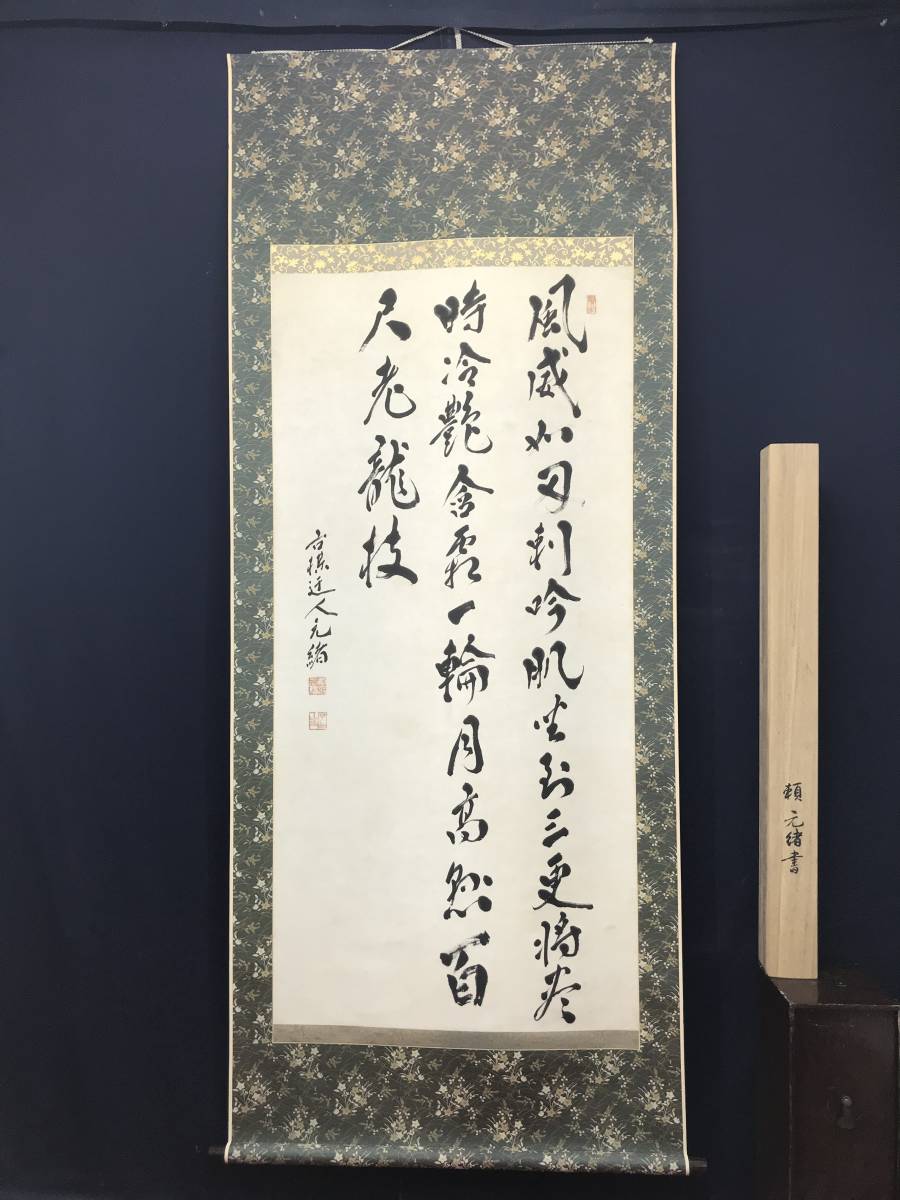 風威如刃刺吟肌坐到三更將尽
時冷艷含霜一輪月高懸百
尺老龍枝
古楳迂人元緒
頼元緒書